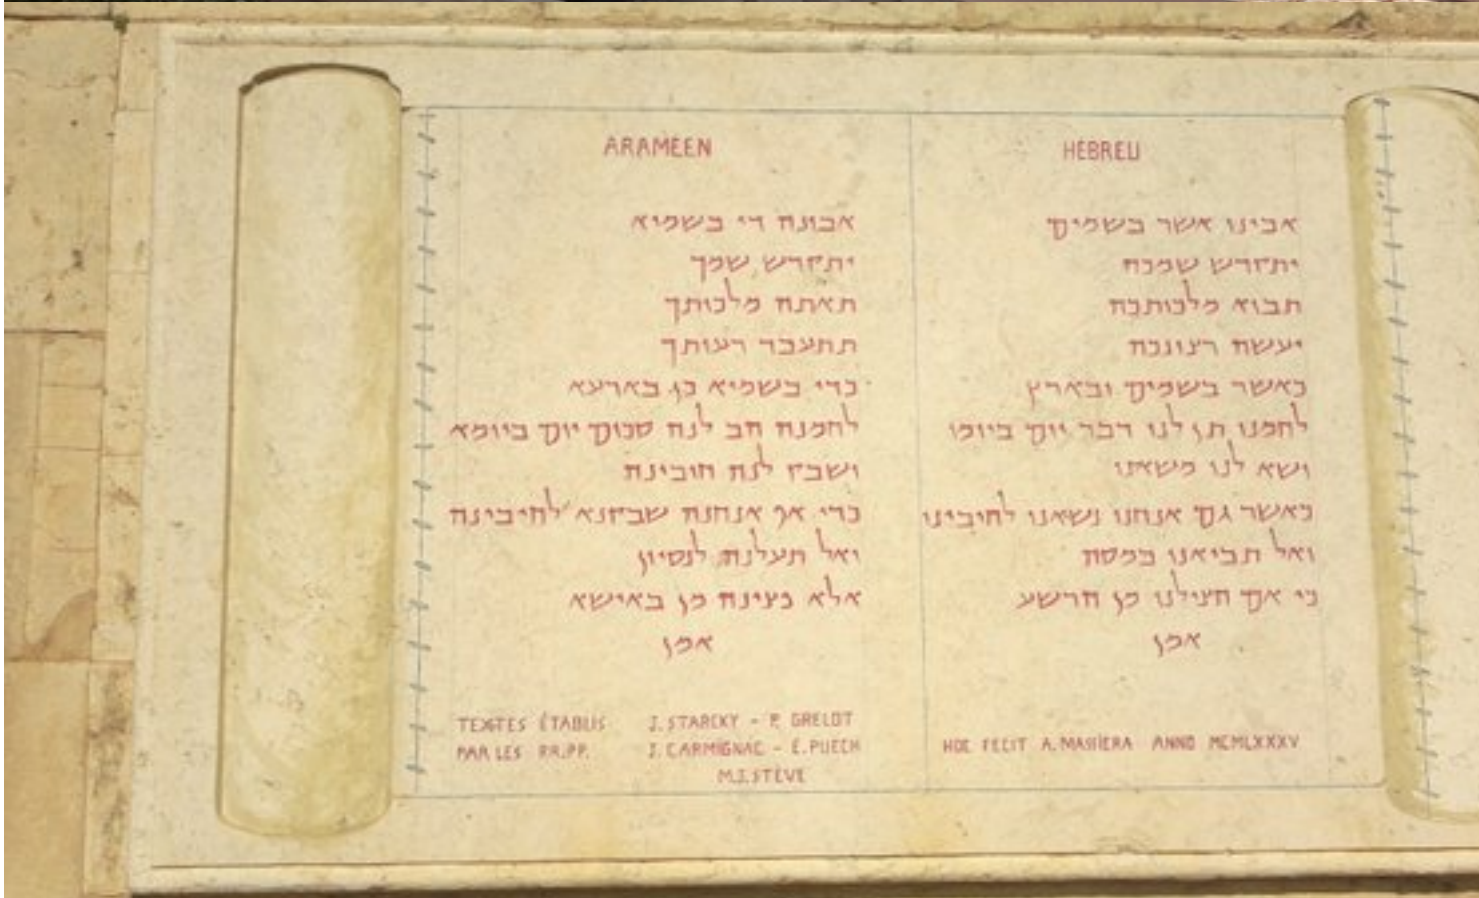 ARAMEEN
אבונה די בשמיא
יתקדש שמך
תאתה מלכותך
תתעבד רעותך
כדי בשמיא כן בארעא
לחמנה הב לנה סכום יום ביומא
ושבק לנה חובינה
כדי אף אנחנה שבקנא לחיבינה
ואל תעלנה לנסיון
אלא פצינה מן באישא
אמן
TEXTES ÉTABLIS J. STARCKY - P. GRELOT
PAR LES RR.PP. J. CARMIGNAC - E. PUECH
M.J. STÈVE
HEBREU
אבינו אשר בשמים
יתקדש שמכה
תבוא מלכותכה
יעשה רצונכה
כאשר בשמים ובארץ
לחמנו תן לנו דבר יום ביומו
ושא לנו משאנו
כאשר גם אנחנו נשאנו לחיבינו
ואל תביאנו במסה
כי אם הצילנו מן הרשע
אמן
HOC FECIT A. MASSIERA ANNO MCMLXXXV